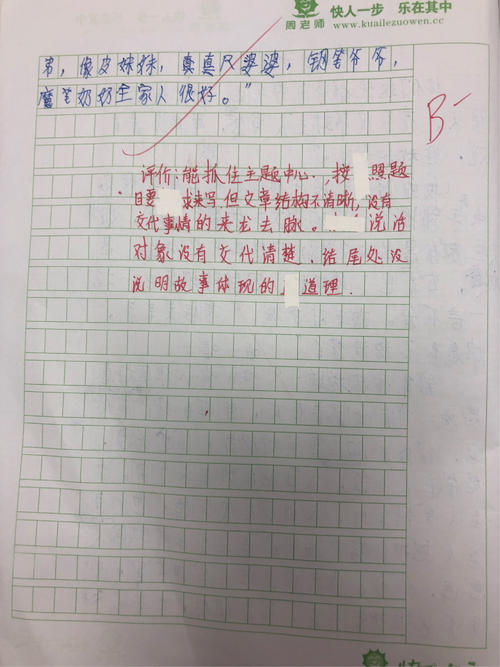 周老师
快人一步 乐在其中
www.kuailezuowen.cc
弟，像皮妹妹，真真尺婆婆，钢笔爷爷，
魔笔奶奶全家人很好。”
B-
评价：能抓住主题中心.，按照题
目要求来写.但文章结构不清晰，没有
交代事情的来龙去脉。说治
对象没有交代清楚.结尾处没
说明故事体现的道理.